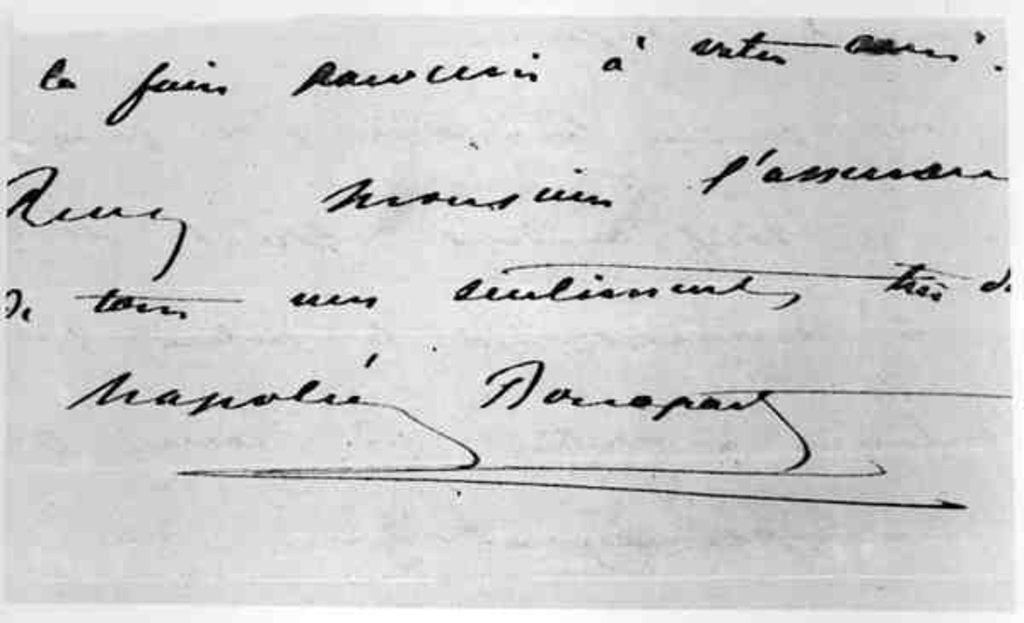 la faire parvenir à votre ami.
Recevez monsieur l'assurance
de tous mes sentiments très d
Napoléon Bonaparte